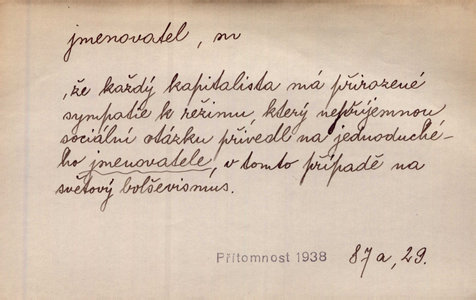 jmenovatel, m
, že každý kapitalista má přirozené
sympatie k režimu, který nepříjemnou
sociální otázku přivedl na jednoduché-
ho jmenovatele, v tomto případě na
světový bolševismus.
Přítomnost 1938 87a, 29.